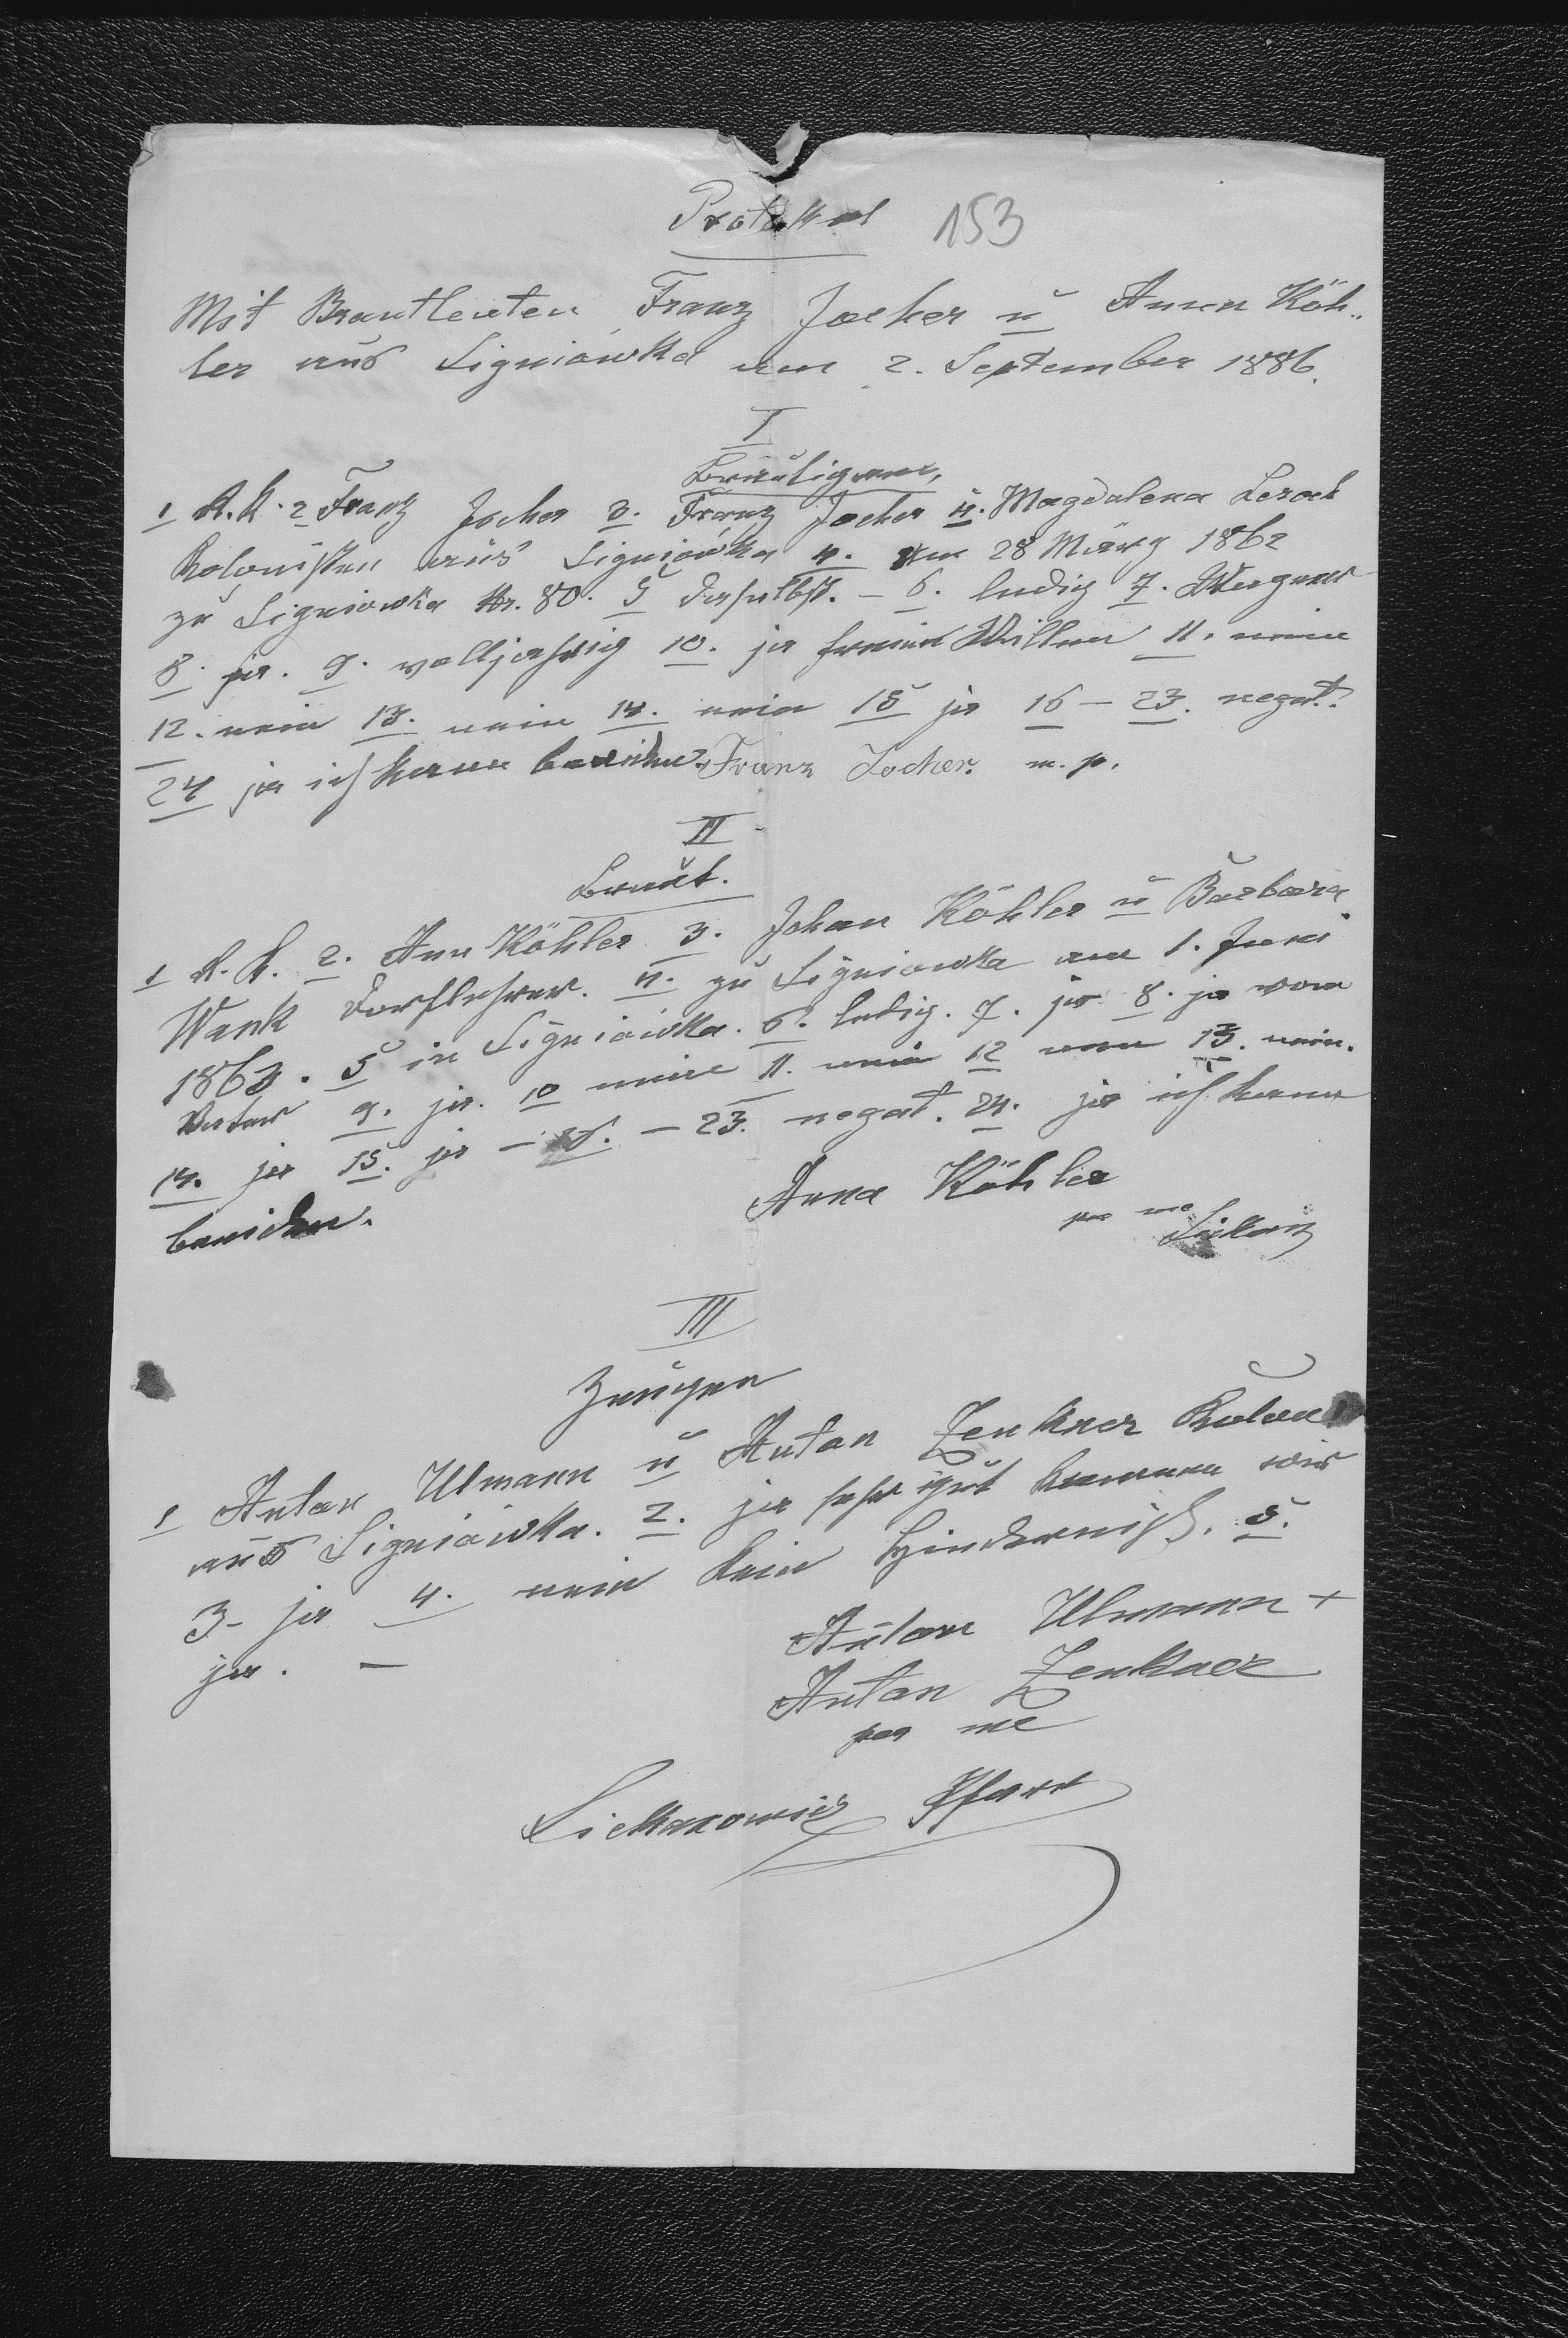 Protokol 153
Mit Brautleuten Franz Jocher u Anna Köh-
ler aus Ligniowka am 2. September 1886.
I
Bräutigam,
1 R. K. 2 Franz Jocher 3. Franz Jocher u. Magdalena
Kolonisten aus Ligniowka 4. am 28 März 1862
zu Ligniowka Nr. 80. 5 daselbst. – 6. ledig 7. Wagner
8. ja. 9. volljahrig 10. ja freien Willen 11. nein
12. nein 13. nein 14. nein 15 ja 16 – 23. negat.
24 ja ich kann beeiden. Franz Jocher. m. p.
II
Braut.
1 R. K. 2. Ann Köhler 3. Johan Köhler u Barbara
Wenk Dorflehrer. 4. zu Ligniowka am 1. Juni
1863. 5 in Ligniowka. 6. ledig. 7. ja 8. ja vom
Vater 9. ja. 10 nein 11. nein 12 nein 13. nein.
14. ja 15. ja – 16. – 23. negat. 24. ja ich kann
beeiden. Anna Köhler
per me
III
Zeugen
1 Anton Ulmann u Anton Zenkner Kolon
aus Ligniowka. 2. ja sehr gut kennen wir
3- ja 4. nein kein Hinderniß. 5.
ja. –
Anton Ulmann +
Anton Zenkner
per me
Pfarr